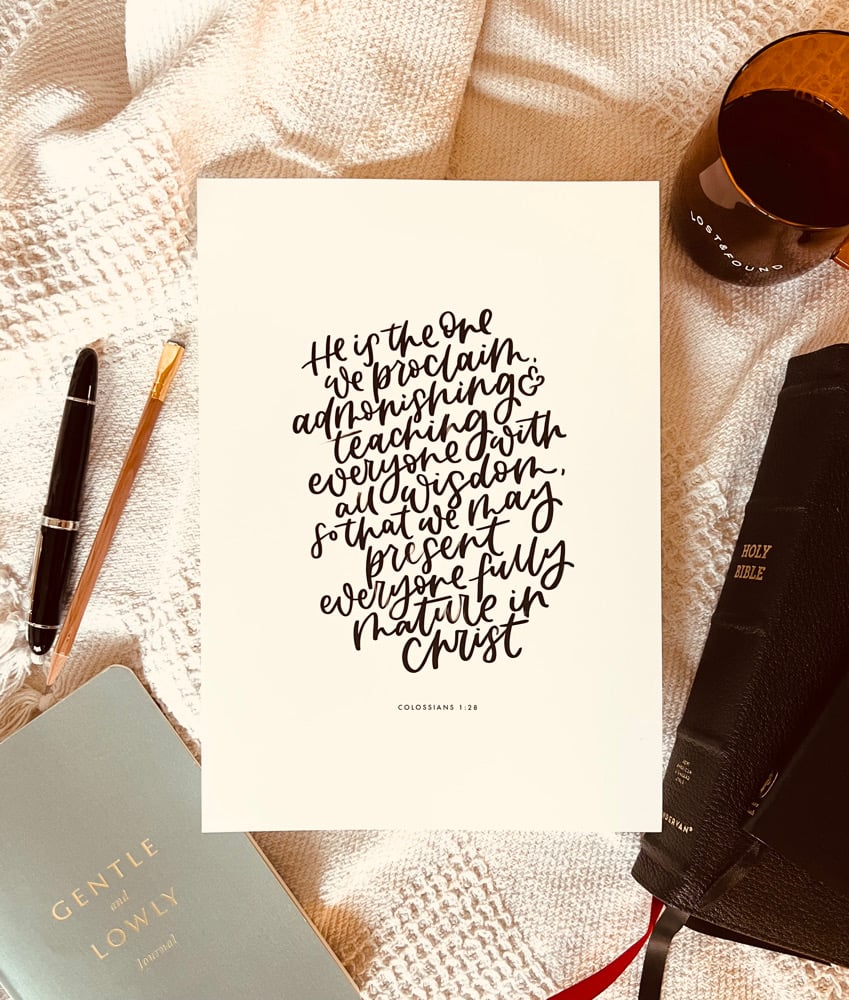 He is the One
we proclaim,
admonishing &
teaching
everyone with
all wisdom,
so that we may
present
everyone fully
mature in
Christ
COLOSSIANS 1:28
LOST&FOUND
HOLY
BIBLE
GENTLE
and
LOWLY
Journal